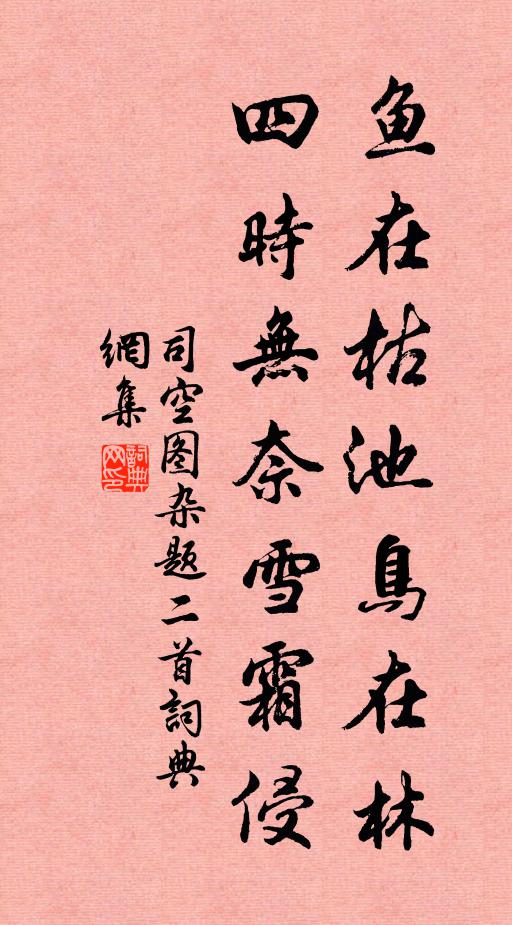 鱼在枯池鳥在林
四時無奈雪霜侵
司空图杂题二首詞典
網集
詞典网印